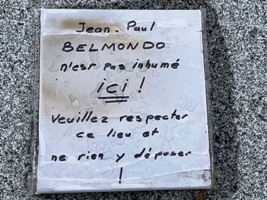 Jean. Paul
BELMONDO
n'est pas inhumé
ici !
Veuillez respecter
ce lieu et
ne rien y déposer
!